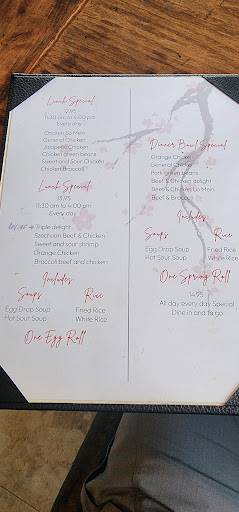 Lunch Special
12.95
11:30 am to 4:00 pm
Every day
Chicken Lo Mein
General Chicken
Jalapeno Chicken
Chicken green beans
Sweet and Sour Chicken
Chicken Broccoli
Lunch Special
13.95
11:30 am to 4:00 pm
Every day
Triple delight
Szechuan Beef & Chicken
Sweet and sour shrimp
Orange Chicken
Broccoli beef and chicken
Includes
Soups
Egg Drop Soup
Hot Sour Soup
Rice
Fried Rice
White Rice
One Egg Roll
Dinner Bowl Special
Orange Chicken
General Chicken
Pork green beans
Beef & Chicken delight
Beef & Chicken Lo Mein
Beef & Broccoli
Includes
Soups
Egg Drop Soup
Hot Sour Soup
Rice
Fried Rice
White Rice
One Spring Roll
14.95
All day every day Special
Dine in and to go